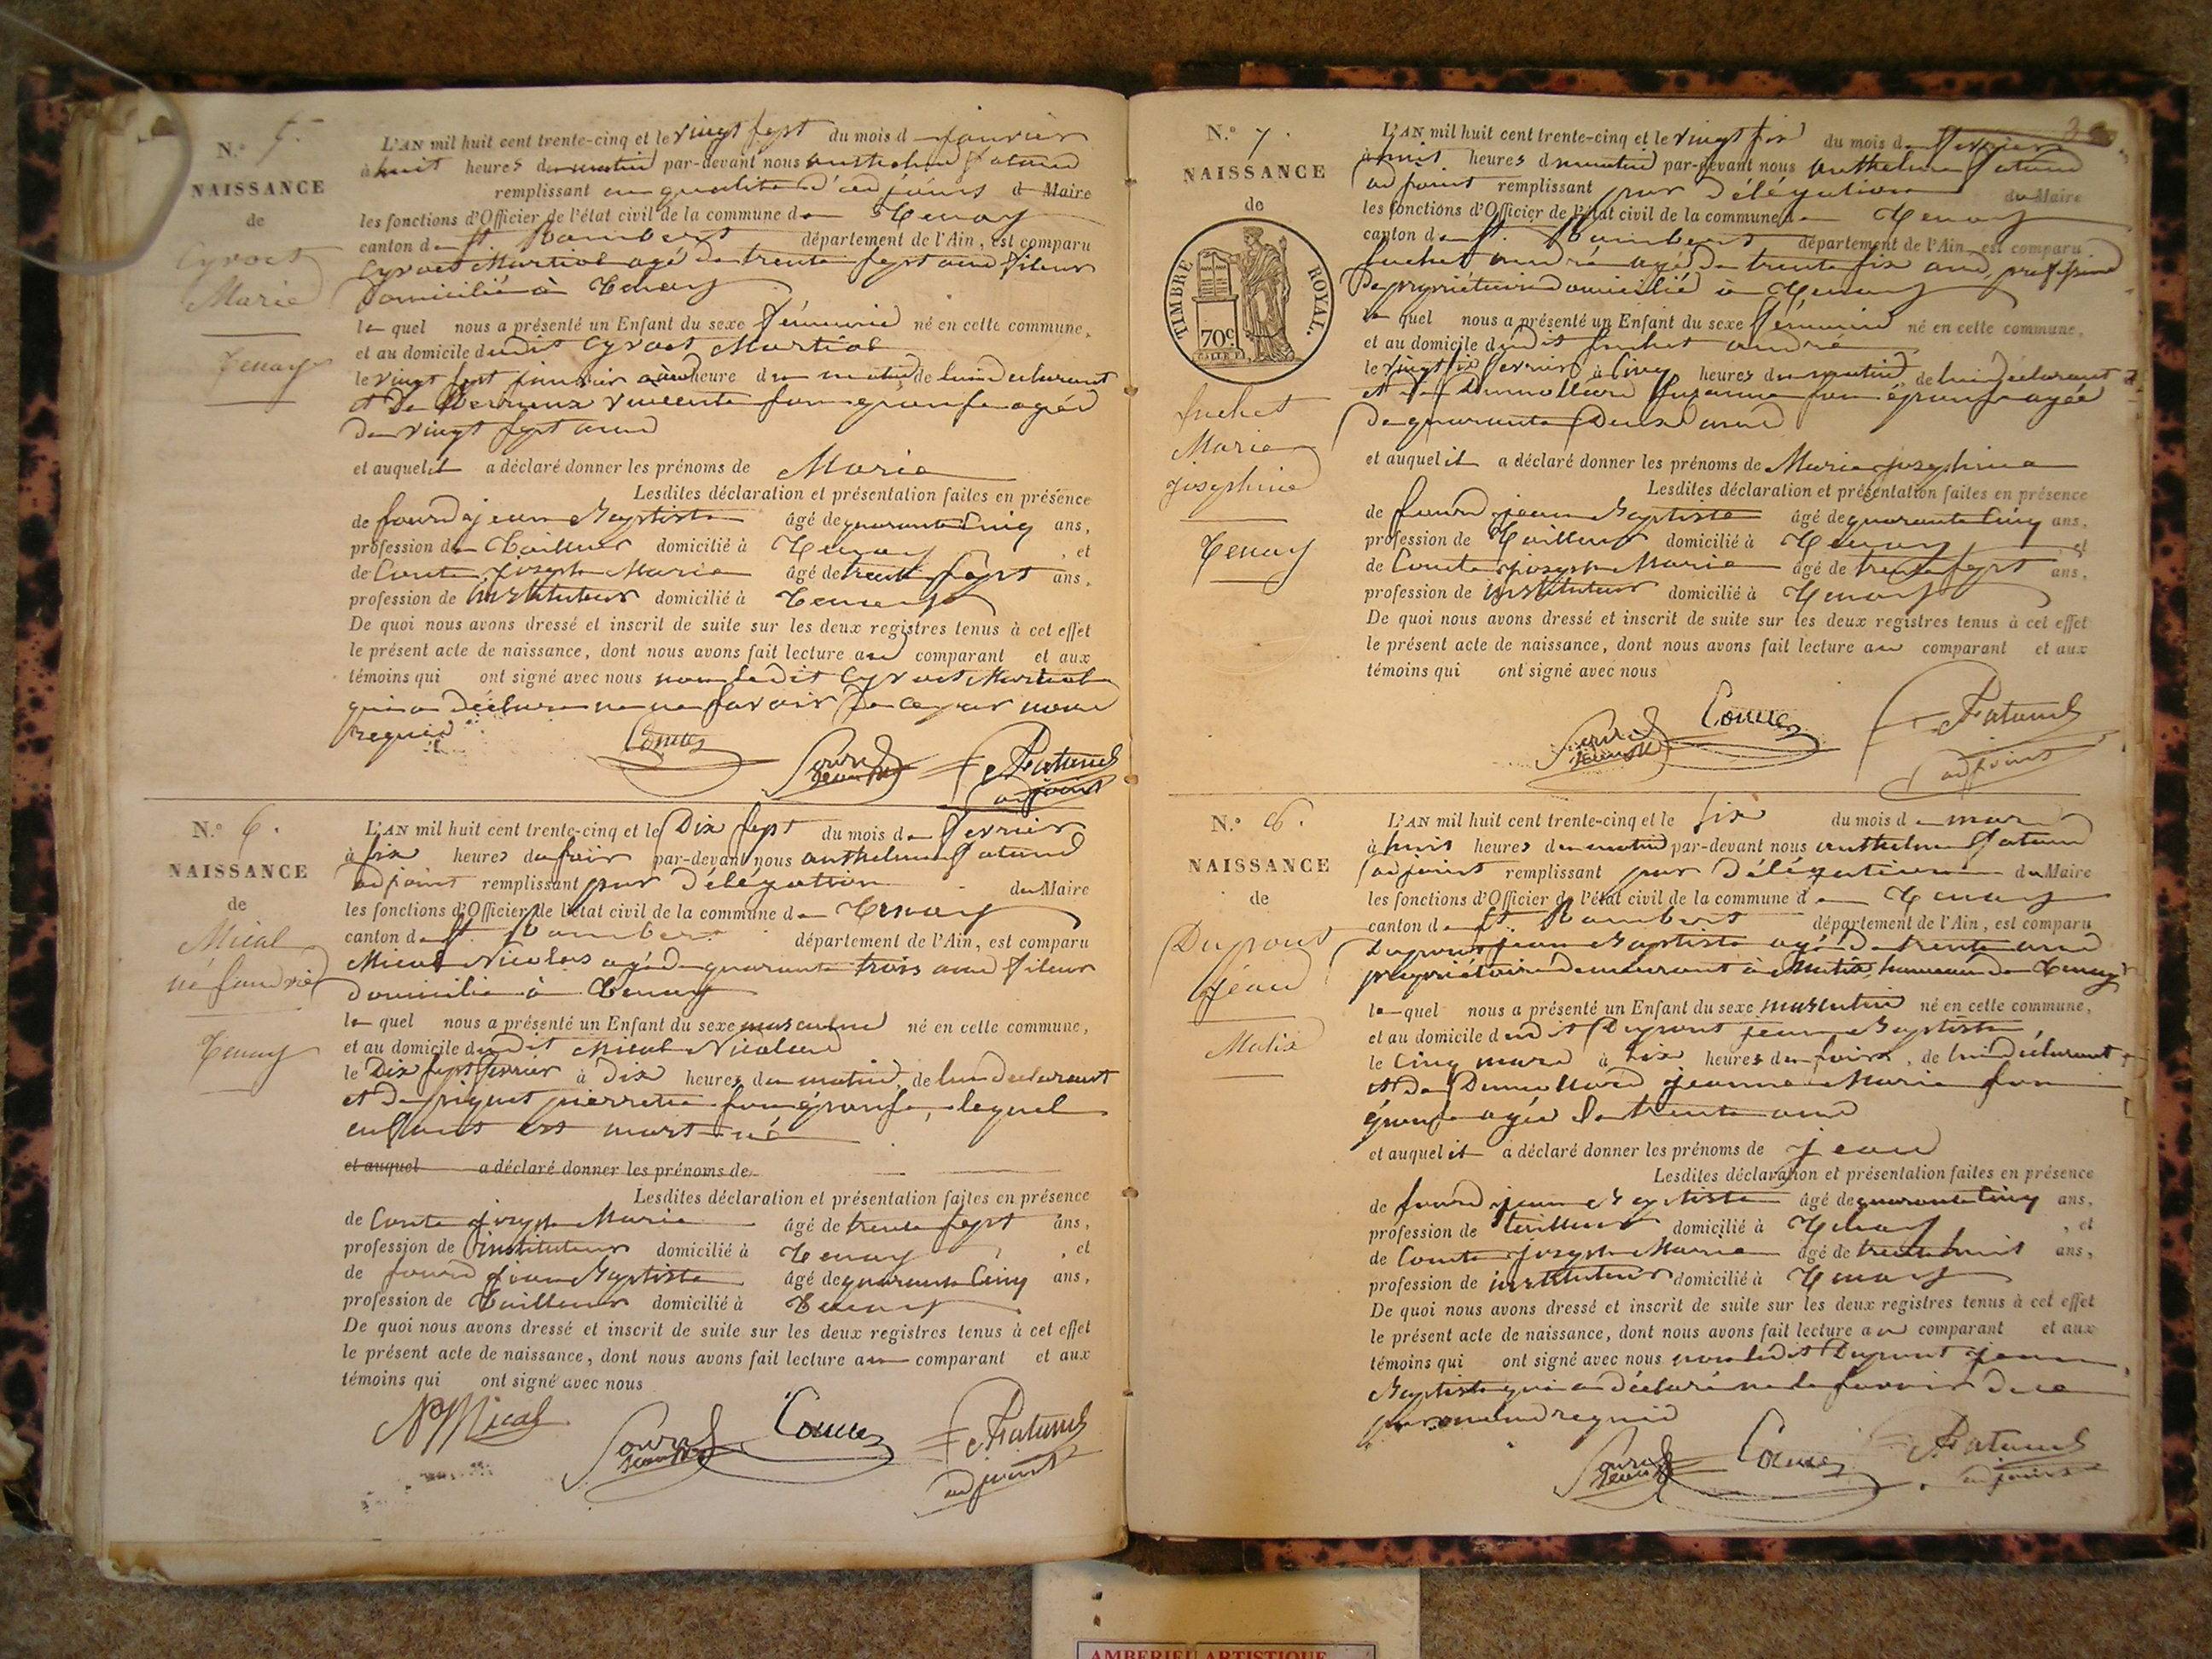 N.° 5.
NAISSANCE
de
Cyvoct
Marie
Tenay
L'AN mil huit cent trente-cinq et le vingt sept du mois d janvier
à huit heures du matin par-devant nous anthelme
remplissant en qualité d'adjoint d Maire
les fonctions d'Officier de l'état civil de la commune de Tenay
canton de St. Rambert département de l'Ain, est comparu
Cyvoct Martial agé de trente sept ans fileur
domicilié à Tenay
le quel nous a présenté un Enfant du sexe féminin né en cette commune,
et au domicile dudit Cyvoct Martial
le vingt sept janvier à une heure du matin, de lui déclarant
et de vincente son épouse agée
de vingt sept ans
et auquel il a déclaré donner les prénoms de Marie
Lesdites déclaration et présentation faites en présence
de jean Baptiste âgé de quarante cinq ans,
profession de Tailleur domicilié à Tenay, et
de Comte joseph Marie âgé de trente sept ans,
profession de instituteur domicilié à Tenay
De quoi nous avons dressé et inscrit de suite sur les deux registres tenus à cet effet
le présent acte de naissance, dont nous avons fait lecture au comparant et aux
témoins qui ont signé avec nous non ledit Cyvoct Martial
qui a déclaré ne savoir de ce par nous
requis
Comte
adjoint
N.° 6.
NAISSANCE
de
Mical
Tenay
L'AN mil huit cent trente-cinq et le Dix sept du mois de fevrier
à six heures du soir par-devant nous anthelme
adjoint remplissant par délégation du Maire
les fonctions d'Officier de l'état civil de la commune de Tenay
canton de St. Rambert département de l'Ain, est comparu
Mical Nicolas agé de quarante trois ans fileur
domicilié à Tenay
le quel nous a présenté un Enfant du sexe masculin né en cette commune,
et au domicile dudit Mical Nicolas
le Dix sept fevrier à dix heures du matin, de lui declarant
et de piquet pierrette son épouse, lequel
enfant est mort-né
et auquel a déclaré donner les prénoms de
Lesdites déclaration et présentation faites en présence
de Comte joseph Marie âgé de trente sept ans,
profession de instituteur domicilié à Tenay, et
de jean Baptiste âgé de quarante cinq ans,
profession de Tailleur domicilié à Tenay
De quoi nous avons dressé et inscrit de suite sur les deux registres tenus à cet effet
le présent acte de naissance, dont nous avons fait lecture au comparant et aux
témoins qui ont signé avec nous
N Mical
Comte
adjoint
N.° 7.
NAISSANCE
de
TIMBRE ROYAL.
70c
Juchet
Marie
josephine
Tenay
L'AN mil huit cent trente-cinq et le vingt six du mois de fevrier
à huit heures du matin par-devant nous anthelme
adjoint remplissant par délégation du Maire
les fonctions d'Officier de l'état civil de la commune de Tenay
canton de St. Rambert département de l'Ain, est comparu
Juchet andré agé de trente six ans, profession
de propriétaire domicilié à Tenay
le quel nous a présenté un Enfant du sexe féminin né en cette commune,
et au domicile dudit Juchet andré
le vingt six fevrier à cinq heures du matin, de lui déclarant
et de Dumollard Suzanne son épouse agée
de quarante Deux ans
et auquel il a déclaré donner les prénoms de Marie josephine
Lesdites déclaration et présentation faites en présence
de jean Baptiste âgé de quarante cinq ans,
profession de Tailleur domicilié à Tenay, et
de Comte joseph Marie âgé de trente sept ans,
profession de instituteur domicilié à Tenay
De quoi nous avons dressé et inscrit de suite sur les deux registres tenus à cet effet
le présent acte de naissance, dont nous avons fait lecture au comparant et aux
témoins qui ont signé avec nous
Comte
adjoint
N.° 8.
NAISSANCE
de
Dupont
Jean
Malix
L'AN mil huit cent trente-cinq et le six du mois de mars
à huit heures du matin par-devant nous anthelme
adjoint remplissant par délégation du Maire
les fonctions d'Officier de l'état civil de la commune de Tenay
canton de St. Rambert département de l'Ain, est comparu
Dupont jean Baptiste agé de trente ans
propriétaire demeurant à Malix, hameau de Tenay
le quel nous a présenté un Enfant du sexe masculin né en cette commune,
et au domicile dudit Dupont jean Baptiste,
le cinq mars à dix heures du soir, de lui déclarant
et de Dumollard jeanne Marie son
épouse agée de trente ans
et auquel il a déclaré donner les prénoms de jean
Lesdites déclaration et présentation faites en présence
de jean Baptiste âgé de quarante cinq ans,
profession de tailleur domicilié à Tenay, et
de Comte joseph Marie âgé de trente huit ans,
profession de instituteur domicilié à Tenay
De quoi nous avons dressé et inscrit de suite sur les deux registres tenus à cet effet
le présent acte de naissance, dont nous avons fait lecture au comparant et aux
témoins qui ont signé avec nous non ledit Dupont jean
Baptiste qui a déclaré ne le savoir de ce
requis
Comte
adjoint
AMBERIEU ARTISTIQUE